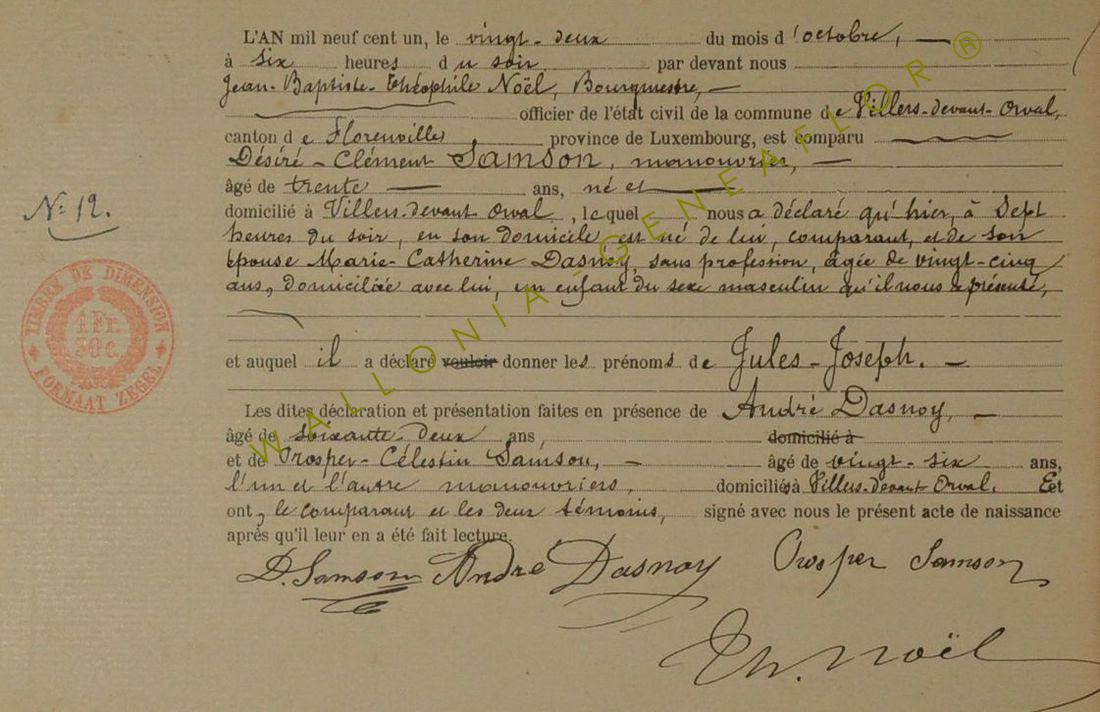 L'AN mil neuf cent un, le vingt-deux du mois d'octobre,
à six heures du soir, par devant nous
Jean-Baptiste-Théophile Noël, Bourgmestre,
officier de l'état civil de la commune de Villers-devant-Orval,
canton de Florenville, province de Luxembourg, est comparu
Désiré-Clément Samson, manouvrier,
âgé de trente ans, né et
domicilié à Villers-devant Orval, lequel nous a déclaré qu'hier, à Sept
heures du soir, en son domicile est né de lui, comparant, et de son
épouse Marie-Catherine Dasnoy, sans profession, âgée de vingt-cinq
ans, domiciliée avec lui, un enfant du sexe masculin qu'il nous a présenté,
N° 12.
TIMBRE DE DIMENSION
1 Fr.
30 c.
FORMAAT ZEGEL
et auquel il a déclaré vouloir donner les prénoms de Jules-Joseph.
Les dites déclaration et présentation faites en présence de André Dasnoy,
âgé de soixante-deux ans, domicilié à
et de Prosper-Célestin Samson, âgé de vingt-six ans,
l'un et l'autre manouvriers, domiciliés à Villers-devant Orval. Et
ont, le comparant et les deux témoins, signé avec nous le présent acte de naissance
après qu'il leur en a été fait lecture.
D. Samson André Dasnoy Prosper Samson
Th. Noël
WALLONIA GENEAFLOR ®